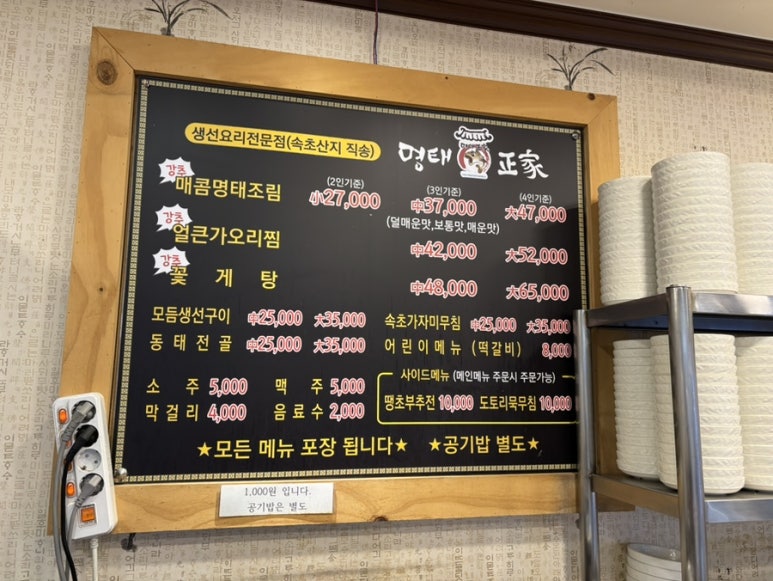 생선요리전문점(속초산지 직송)
명태 正家
강추 매콤명태조림 (2인기준) 小27,000 (3인기준) 中37,000 (4인기준) 大47,000
(덜매운맛,보통맛,매운맛)
강추 얼큰가오리찜 中42,000 大52,000
강추 꽃게탕 中48,000 大65,000
모듬생선구이 中25,000 大35,000 속초가자미무침 中25,000 大35,000
동태전골 中25,000 大35,000 어린이메뉴 (떡갈비) 8,000
소주 5,000 맥주 5,000 사이드메뉴 (메인메뉴 주문시 주문가능)
막걸리 4,000 음료수 2,000 땡초부추전 10,000 도토리묵무침 10,000
★모든 메뉴 포장 됩니다★ ★공기밥 별도★
1,000원 입니다.
공기밥은 별도